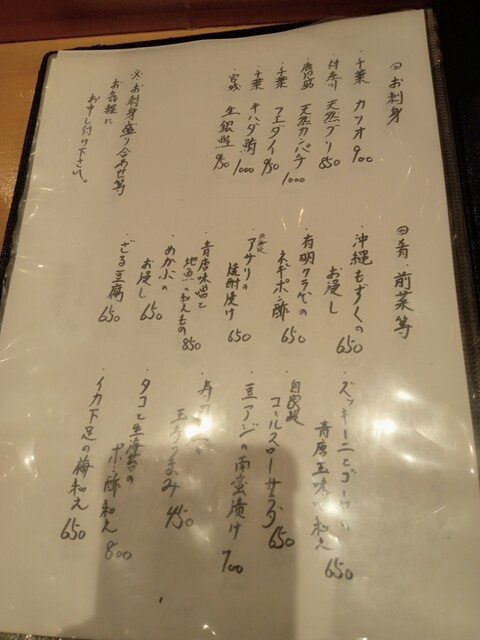 お刺身
・千葉 カツオ 900
・神奈川 天然ブリ 850
・鹿児島 天然カンパチ 1000
・千葉 フエダイ 950
・千葉 キハダ鮪 1000
・宮城 生銀鮭 950
※お刺身盛り合わせ等
お気軽に
お申し付け下さい。
肴・前菜等
・沖縄もずくの
お浸し 650
・有明クラゲの
ネギポン酢 650
・アサリの
焼酎漬け 650
・青唐味噌と
地魚の和えもの 850
・めかぶの
お浸し 650
・ざる豆腐 650
・ズッキーニとゴーヤの
青唐玉味噌和え 650
・自家製
コールスローサラダ 650
・豆アジの南蛮漬け 700
玉子つまみ 450
・タコと生海苔の
ポン酢和え 800
・イカ下足の梅和え 650